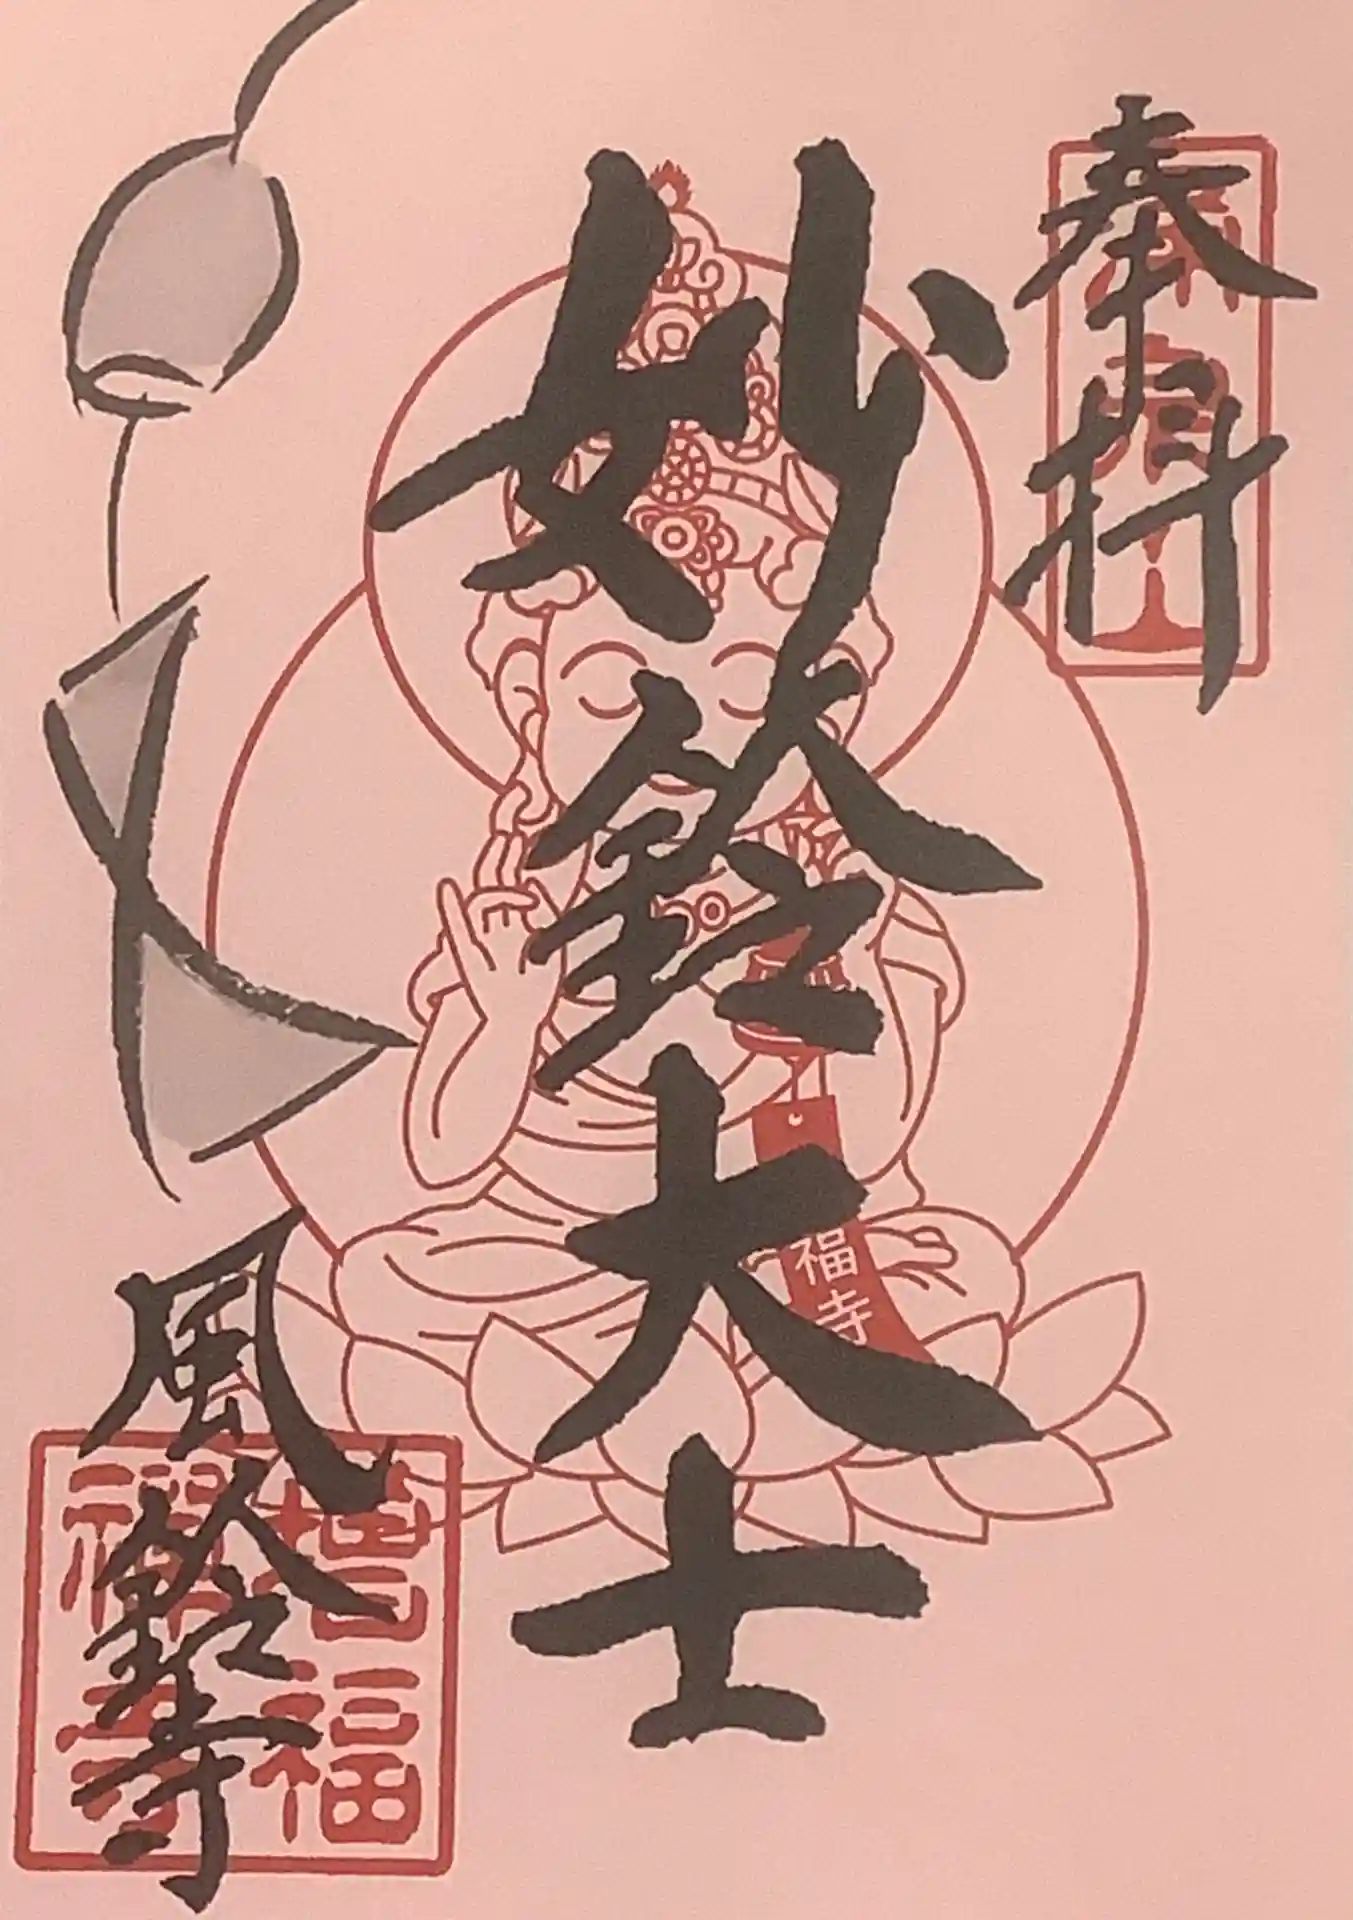 奉拝
妙鈴大士
福寺
風鈴寺
増福
禅寺